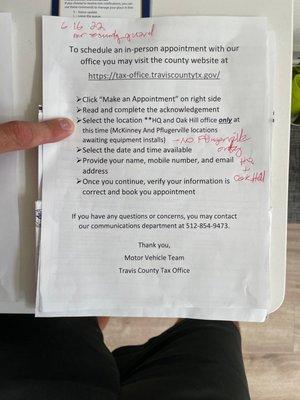 6 16 22
mr security guard
To schedule an in-person appointment with our
office you may visit the county website at
https://tax-office.traviscountytx.gov/
➢Click "Make an Appointment" on right side
➢Read and complete the acknowledgement
➢Select the location **HQ and Oak Hill office only at
this time (McKinney And Pflugerville locations
awaiting equipment installs) - NO Pflugerville
only
➢Select the date and time available
➢Provide your name, mobile number, and email
HQ
address
+
Oak Hill
➢Once you continue, verify your information is
correct and book you appointment
If you have any questions or concerns, you may contact
our communications department at 512-854-9473.
Thank you,
Motor Vehicle Team
Travis County Tax Office